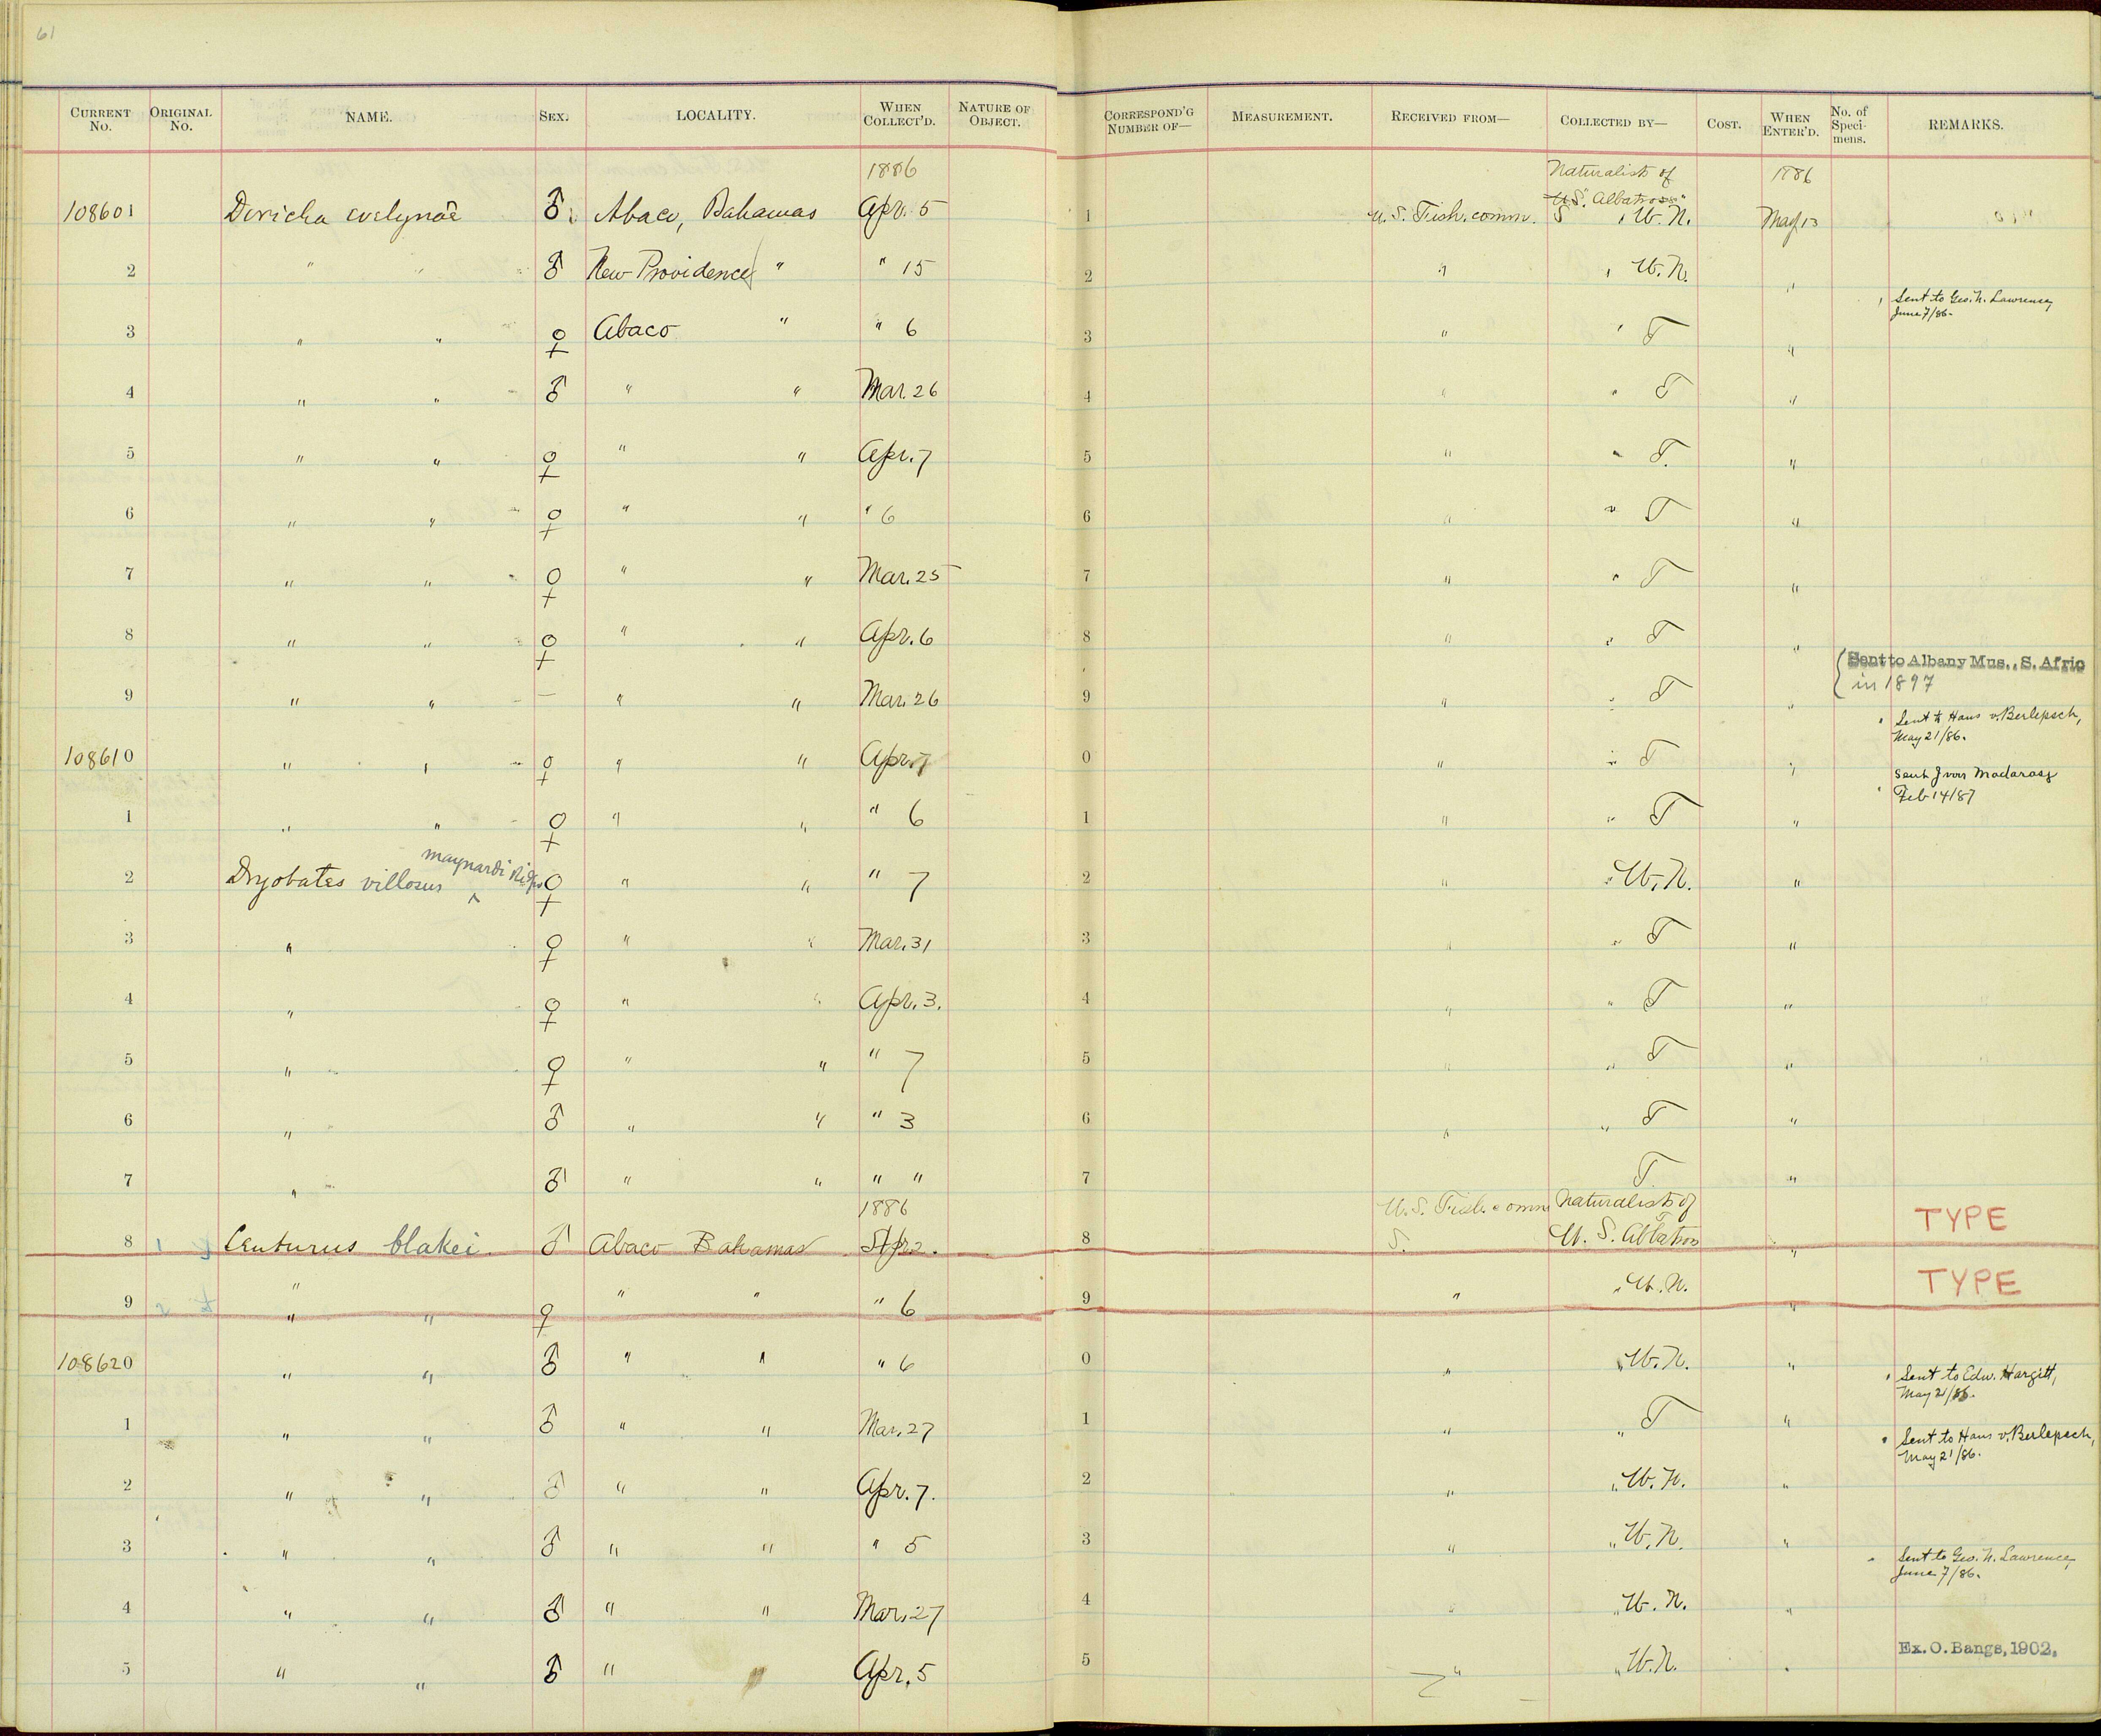 61
CURRENT No. ORIGINAL No. NAME. SEX. LOCALITY. WHEN COLLECT'D. NATURE OF OBJECT. CORRESPOND'G NUMBER OF— MEASUREMENT. RECEIVED FROM— COLLECTED BY— COST. WHEN ENTER'D. No. of Speci- mens. REMARKS.
1886 Naturalists of 1886
U.S. "Albatross"
108601 Doricha evelynae ♂ Abaco, Bahamas Apr. 5 1 U.S. Fish. comm. S W.N. May 13
2 " " ♂ New Providence " " 15 2 " " W.N. "
Sent to Geo. N. Lawrence, June 7/86.
3 " " ♀ Abaco " " 6 3 " " T "
4 " " ♂ " " Mar. 26 4 " " T "
5 " " ♀ " " Apr. 7 5 " " T. "
6 " " ♀ " " " 6 6 " " T "
7 " " ♀ " " Mar. 25 7 " " T "
8 " " ♀ " " Apr. 6 8 " " T "
Sent to Albany Mus., S. Afric
in 1897
9 " " — " " Mar. 26 9 " " T "
Sent to Hans v. Berlepsch, May 21/86.
108610 " " ♀ " " Apr. 7 0 " " T "
Sent J von Madarasz Feb 14/87
1 " " ♀ " " " 6 1 " " T "
maynardi Ridgw
2 Dryobates villosus ^ ♀ " " " 7 2 " " W.N. "
3 " ♀ " " Mar. 31 3 " " T "
4 " ♀ " " Apr. 3. 4 " " T "
5 " ♀ " " " 7 5 " " T "
6 " ♂ " " " 3 6 " " T "
7 " ♂ " " " " 7 T "
1886 U.S. Fish. comm Naturalists of
8 Centurus blakei. ♂ Abaco Bahamas Apr 2. 8 S. U.S. Albatross " TYPE
9 " " ♀ " " " 6 9 " " W.N. " TYPE
108620 " " ♂ " " " 6 0 " " W.N. "
Sent to Edw. Hargitt, May 21/86.
1 " " ♂ " " Mar. 27 1 " " T "
Sent to Hans v. Berlepsch, May 21/86.
2 " " ♂ " " Apr. 7. 2 " " W.N. "
3 " " ♂ " " " 5 3 " " W.N. "
Sent to Geo. N. Lawrence, June 7/86.
4 " " ♂ " " Mar. 27 4 " " W.N. "
5 " " ♂ " " Apr. 5 5 " " W.N. " Ex. O. Bangs, 1902.